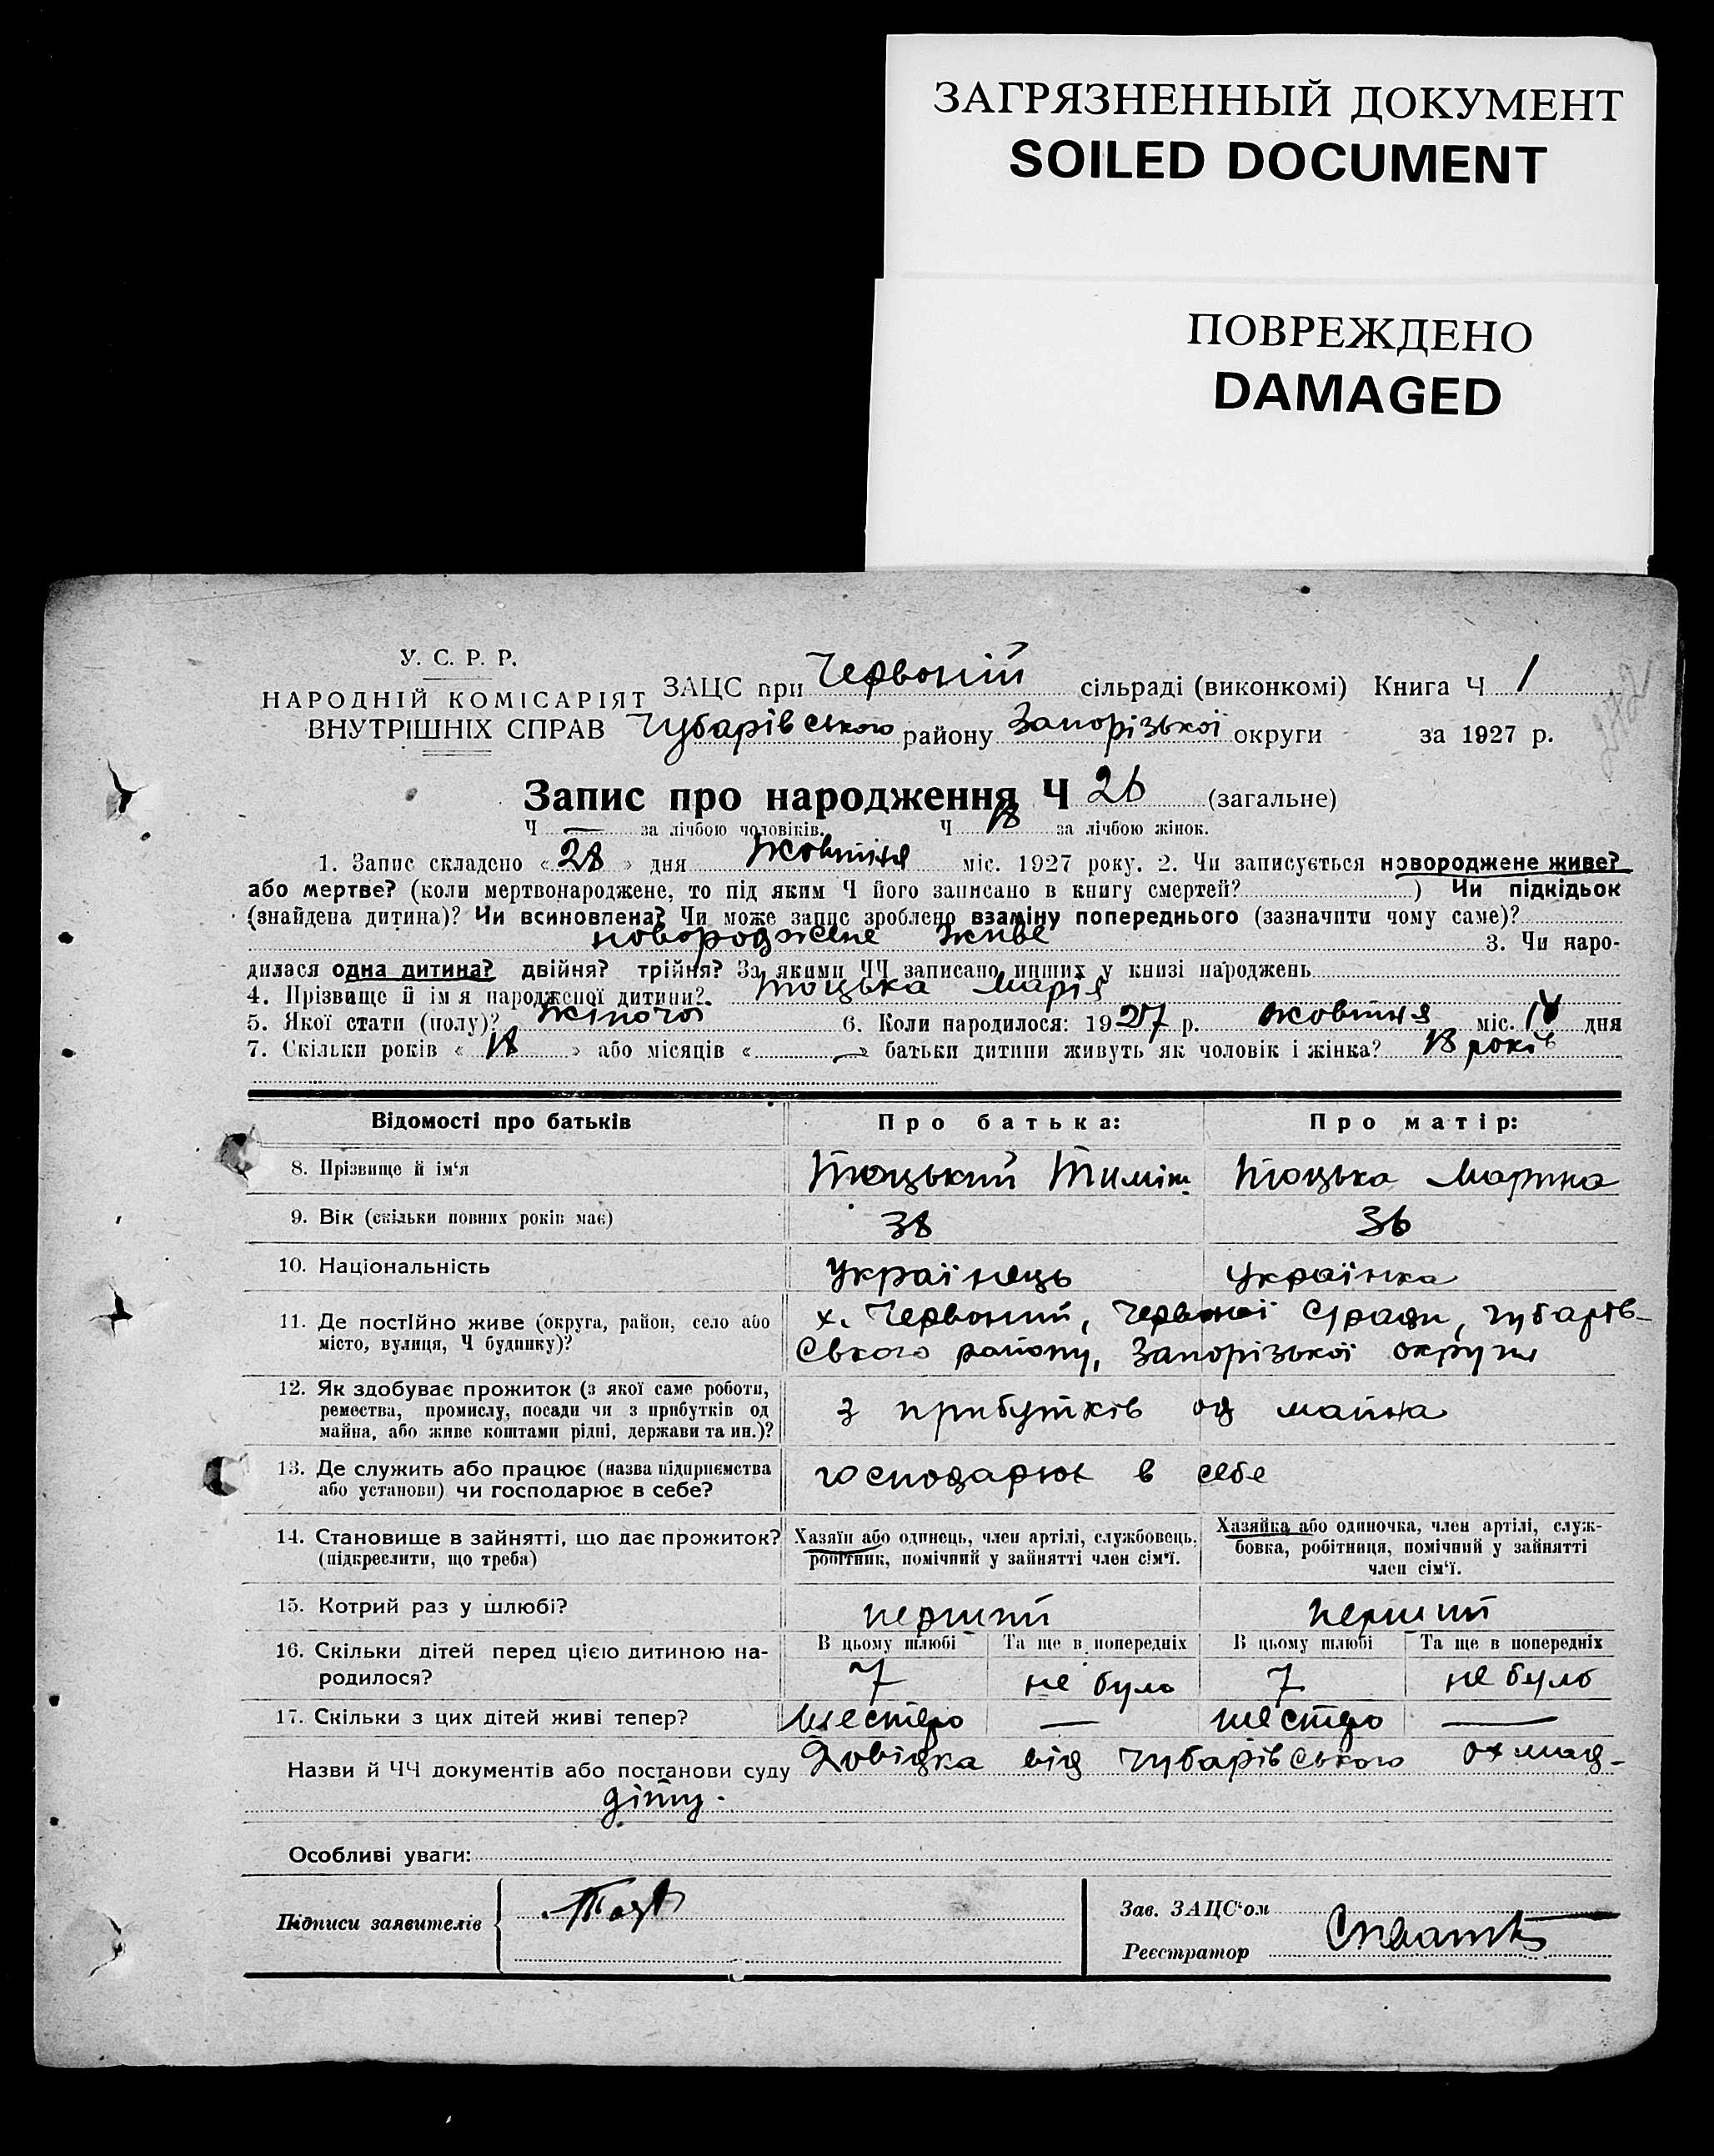 ЗАГРЯЗНЕННЫЙ ДОКУМЕНТ
SOILED DOCUMENT
ПОВРЕЖДЕНО
DAMAGED
У. С. Р. Р.
НАРОДНІЙ КОМІСАРІЯТ
ВНУТРІШНІХ СПРАВ
ЗАЦС при Червоній сільраді (виконкомі) Книга Ч 1
Чубарівського району Запорізької округи за 1927 р.
Запис про народження Ч 26 (загальне)
Ч — за лічбою чоловіків. Ч 18 за лічбою жінок.
1. Запис складено « 28 » дня Жовтня міс. 1927 року. 2. Чи записується новороджене живе?
або мертве? (коли мертвонароджене, то під яким Ч його записано в книгу смертей? ) Чи підкідьок
(знайдена дитина)? Чи всиновлена? Чи може запис зроблено взаміну попереднього (зазначити чому саме)?
новороджене живе 3. Чи наро-
дилася одна дитина? двійня? трійня? За якими ЧЧ записано инших у книзі народжень
4. Прізвище й ім'я народженої дитини? Тоцька Марія
5. Якої стати (полу)? жіночої 6. Коли народилося: 1927 р. жовтня міс. дня
7. Скільки років « 18 » або місяців « — » батьки дитини живуть як чоловік і жінка? 18 років
Відомості про батьків Про батька: Про матір:
8. Прізвище й ім'я Тоцький Тиміш Тоцька Марина
9. Вік (скільки повних років має) 38 36
10. Національність Українець Українка
11. Де постійно живе (округа, район, село або місто, вулиця, Ч будинку)?
х. Червоний, Червоної С/ради, Чубарів-
ського району, Запорізької округи
12. Як здобуває прожиток (з якої саме роботи,
ремества, промислу, посади чи з прибутків од
майна, або живе коштами рідні, держави та ин.)?
з прибутків од майна
13. Де служить або працює (назва підприємства
або установи) чи господарює в себе?
господарює в себе
14. Становище в зайнятті, що дає прожиток?
(підкреслити, що треба)
Хазяїн або одинець, член артілі, службовець,
робітник, помічний у зайнятті член сім'ї.
Хазяйка або одиночка, член артілі, служ-
бовка, робітниця, помічний у зайнятті
член сім'ї.
15. Котрий раз у шлюбі? перший перший
16. Скільки дітей перед цією дитиною на-
родилося?
В цьому шлюбі Та ще в попередніх В цьому шлюбі Та ще в попередніх
7 не було 7 не було
17. Скільки з цих дітей живі тепер? шестеро — шестеро —
Назви й ЧЧ документів або постанови суду Довідка від Чубарівського охмад-
діту.
Особливі уваги:
Підписи заявителів
Зав. ЗАЦС'ом
Реєстратор